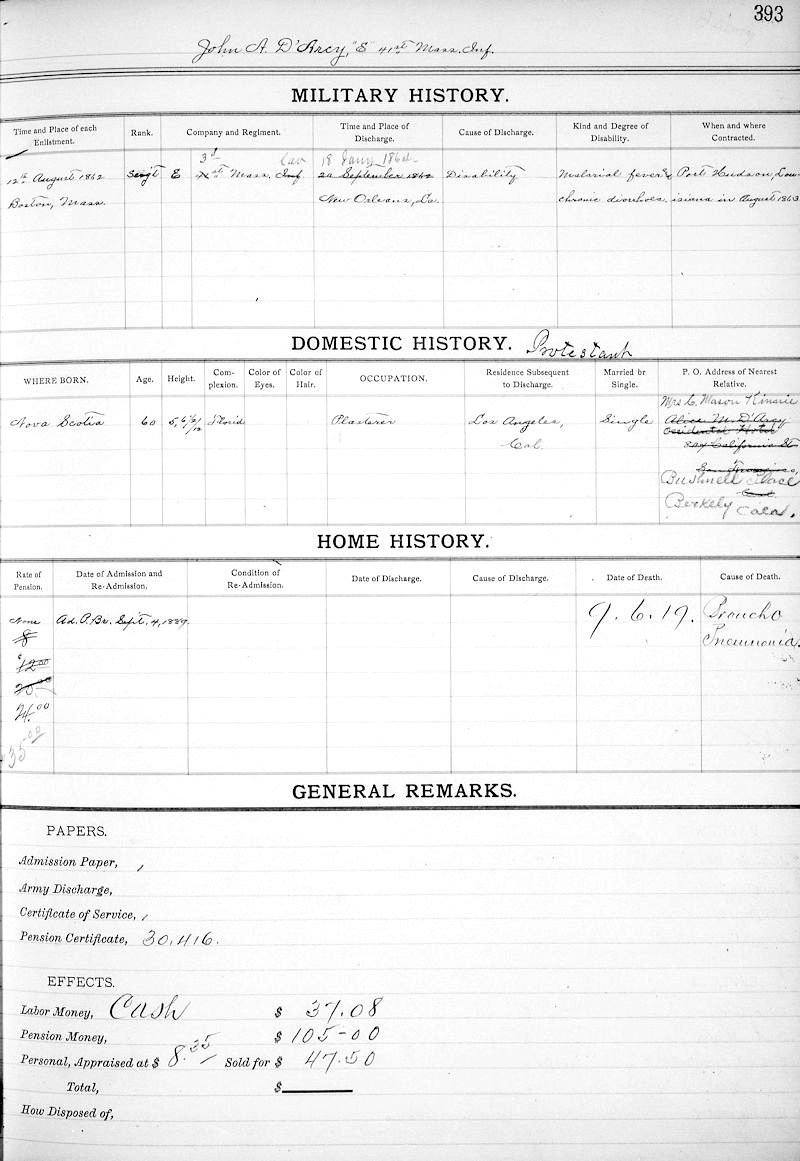 393
John A. D'Arcy, "E" 41st Mass. Inf.
MILITARY HISTORY.
Time and Place of each Enlistment.
Rank.
Company and Regiment.
Time and Place of Discharge.
Cause of Discharge.
Kind and Degree of Disability.
When and where Contracted.
3d Cav 18 Jany 1864
12th August 1862 Serg't E 41st Mass. Inf 20 September 1862 Disability Malarial fever & Port Hudson, Lou-
Boston, Mass. New Orleans, La. chronic diarrhoea. isiana in August 1863
DOMESTIC HISTORY. Protestant
WHERE BORN.
Age.
Height.
Complexion.
Color of Eyes.
Color of Hair.
OCCUPATION.
Residence Subsequent to Discharge.
Married or Single.
P. O. Address of Nearest Relative.
Mrs C. Mason Kinnie
Nova Scotia 60 5, 6 1/2/12 Florid Plasterer Los Angeles, Single Alice M. D'Arcy
Cal. Occidental Hotel
California St
San Francisco,
Bushnell Place
Cal.
Berkely Cala.
HOME HISTORY.
Rate of Pension.
Date of Admission and Re-Admission.
Condition of Re-Admission.
Date of Discharge.
Cause of Discharge.
Date of Death.
Cause of Death.
None Ad. P. Br. Sept. 4, 1889. 9. 6. 19. Broncho
8 Pneumonia.
$12.00
20.00
24.00
35.00
GENERAL REMARKS.
PAPERS.
Admission Paper, /
Army Discharge,
Certificate of Service, /
Pension Certificate, 30,416.
EFFECTS.
Labor Money, Cash $ 37.08
Pension Money, $ 105-00
Personal, Appraised at $ 8.35 Sold for $ 47.50
Total, $
How Disposed of,